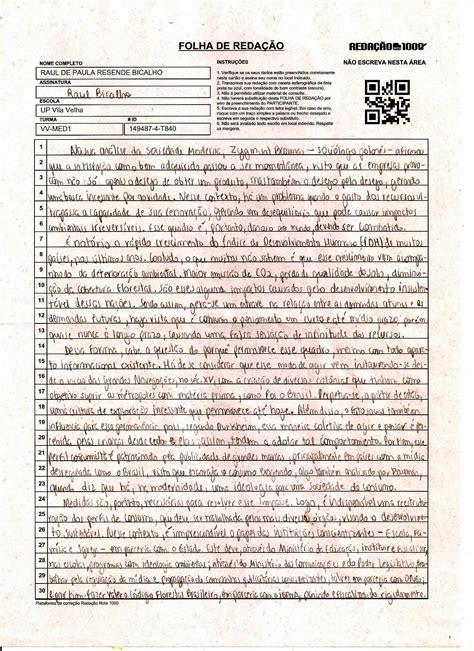 FOLHA DE REDAÇÃO
REDAÇÃO 1000
NOME COMPLETO
RAUL DE PAULA RESENDE BICALHO
ASSINATURA
Raul Bicalho
ESCOLA
UP Vila Velha
TURMA
# ID
VV-MED1
149487-4-T840
INSTRUÇÕES
1. Verifique se os seus dados estão preenchidos corretamente
neste cartão e assine seu nome no local indicado.
2. Transcreva sua redação com caneta esferográfica de tinta
preta ou azul, com tonalidade de bom contraste (escura).
3. Não é permitido utilizar material de consulta.
4. Não haverá substituição desta FOLHA DE REDAÇÃO por
erro de preenchimento do PARTICIPANTE.
5. Escreva a sua redação com letra legível. Em caso de
escreva em seguida o respectivo substituto.
6. Não será avaliado texto escrito em local indevido. Respeite
as margens.
NÃO ESCREVA NESTA ÁREA
1 análise da Sociedade Moderna, Zygmunt Bauman - Sociólogo polonês - afirmou
2 que a satisfação como bem adquirido passou a ser momentânea, visto que as empresas provo-
3 cam não só apenas o desejo de obter um produto, mas também o desejo pelo desejo, gerando
4 uma busca incessante por novidade. Nesse contexto, há um problema quando o gasto dos recursos ul-
5 trapassa a capacidade de sua renovação, gerando um desequilíbrio que pode causar impactos
6 ambientais irreversíveis. Esse quadro é, portanto, danoso ao mundo, devendo ser combatido.
7 É notório o rápido crescimento do Índice de Desenvolvimento Humano (IDH) de muitos
8 países, nos últimos anos. Contudo, o que muitos não sabem é que esse crescimento vem acompa-
9 nhado da deterioração ambiental. Maior emissão de CO2, perda da qualidade do solo, diminui-
10 ção da cobertura florestal, são esses alguns impactos causados pelo desenvolvimento insusten-
11 tável dessas nações. Sendo assim, gera-se um entrave na relação entre as demandas atuais e as
12 demandas futuras, haja vista que é comum o pensamento em curto e até médio prazo, porém
13 quase nunca a longo prazo, causando uma falsa sensação de infinitude dos recursos.
14 Dessa forma, cabe a questão do porque permanece esse quadro, mesmo com todo apara-
15 to informacional existente. Há de se considerar que esse modo de agir vem instaurando-se des-
16 de o início das Grandes Navegações, no séc. XV, com a criação de diversas colônias que tinham como
17 objetivo suprir as metrópoles com matéria prima, como foi o Brasil. Perpetua-se, a partir de então,
18 uma cultura de exploração incessante que permanece até hoje. Além disso, o também
19 influencia para essa permanência, pois, segundo Durkheim, essa maneira coletiva de agir e pensar é per-
20 cebida pelas crianças desde cedo e elas, assim, tendem a adotar tal comportamento. Por fim, esse
21 perfil consumista é patrocinado pela publicidade de grandes marcas, principalmente em países com a mídia
22 desregulada como o Brasil, visto que encoraja o consumo também analisado por Bauman,
23 quando diz que há, na modernidade, uma ideologia para uma Sociedade do consumo.
24 Medidas são, portanto, necessárias para resolver esse impasse. Logo, é indispensável uma reestrutu-
25 ração dos perfis de consumo, que deve ser trabalhada pelas mais diversas visando o desenvolvimen-
26 to sustentável. Nesse contexto, é imprescindível o papel das instituições conscientizantes - Escola, Fa-
27 mília e Igreja - em parceria com o Estado. Este deve, através do Ministério da Educação, instituir
28 nas escolas, programas com ideologia ambientalista; através do Ministério das Comunicações e do Poder Legislativo, tra-
29 balhar pela regulação da mídia e propagação de campanhas publicitárias em parceria com ONGs;
30 e por fim, fazer valer o Código Florestal Brasileiro, em parceria com o IBAMA, punindo e fiscalizando rigidamente
Plataforma de correção Redação Nota 1000